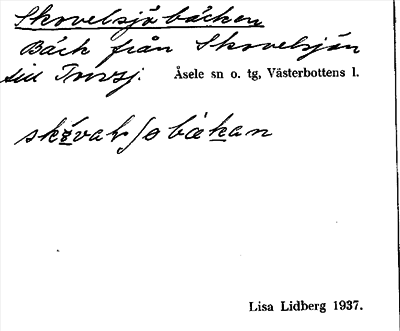 Skovelsjöbäcken
Bäck från Skovelsjön
till Torvsj. Åsele sn o. tg, Västerbottens l.
Lisa Lidberg 1937.